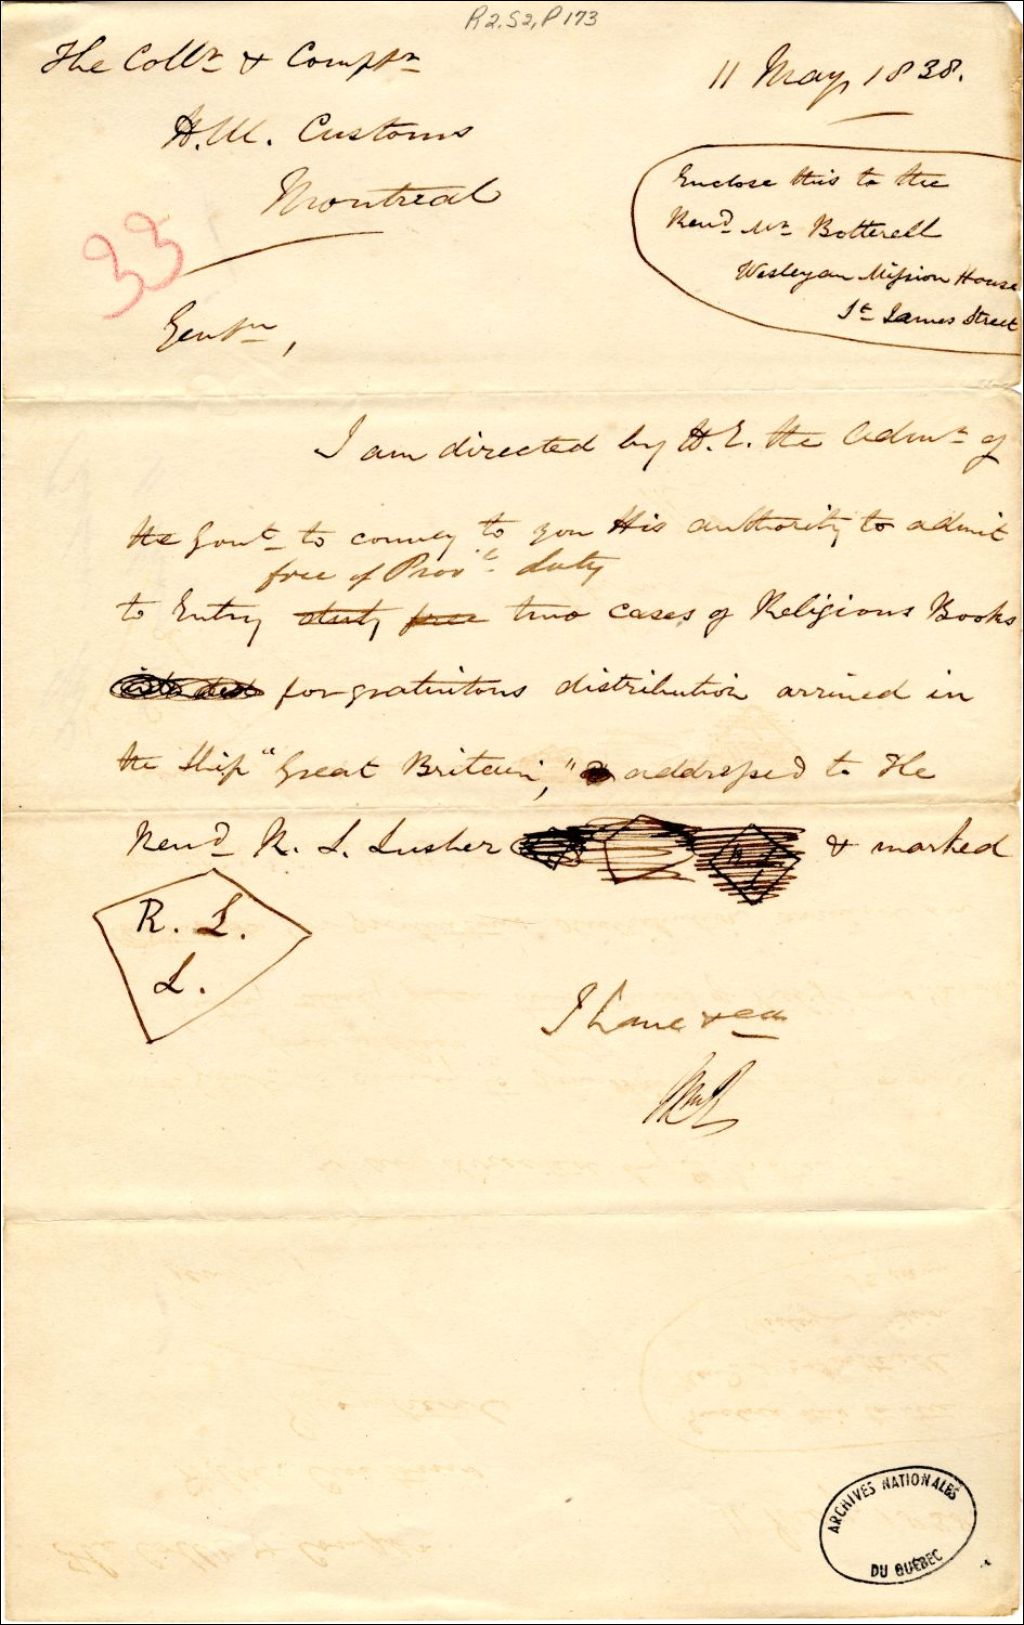 R2, S2, P173
The Collr & Comptr
11 May 1838.
H.M. Customs
Montreal
33
Enclose this to the
Revd Mr Botterell
Wesleyan Mission House
St James Street
Gentn,
I am directed by H.E. the Admr of
the Govt to convey to you His authority to admit
free of Provl duty
to Entry duty free two cases of Religious Books
for gratuitous distribution arrived in
the Ship "Great Britain," addressed to The
Revd R. L. Lusher & marked
R. L.
L.
I have &ca
ARCHIVES NATIONALES
DU QUÉBEC